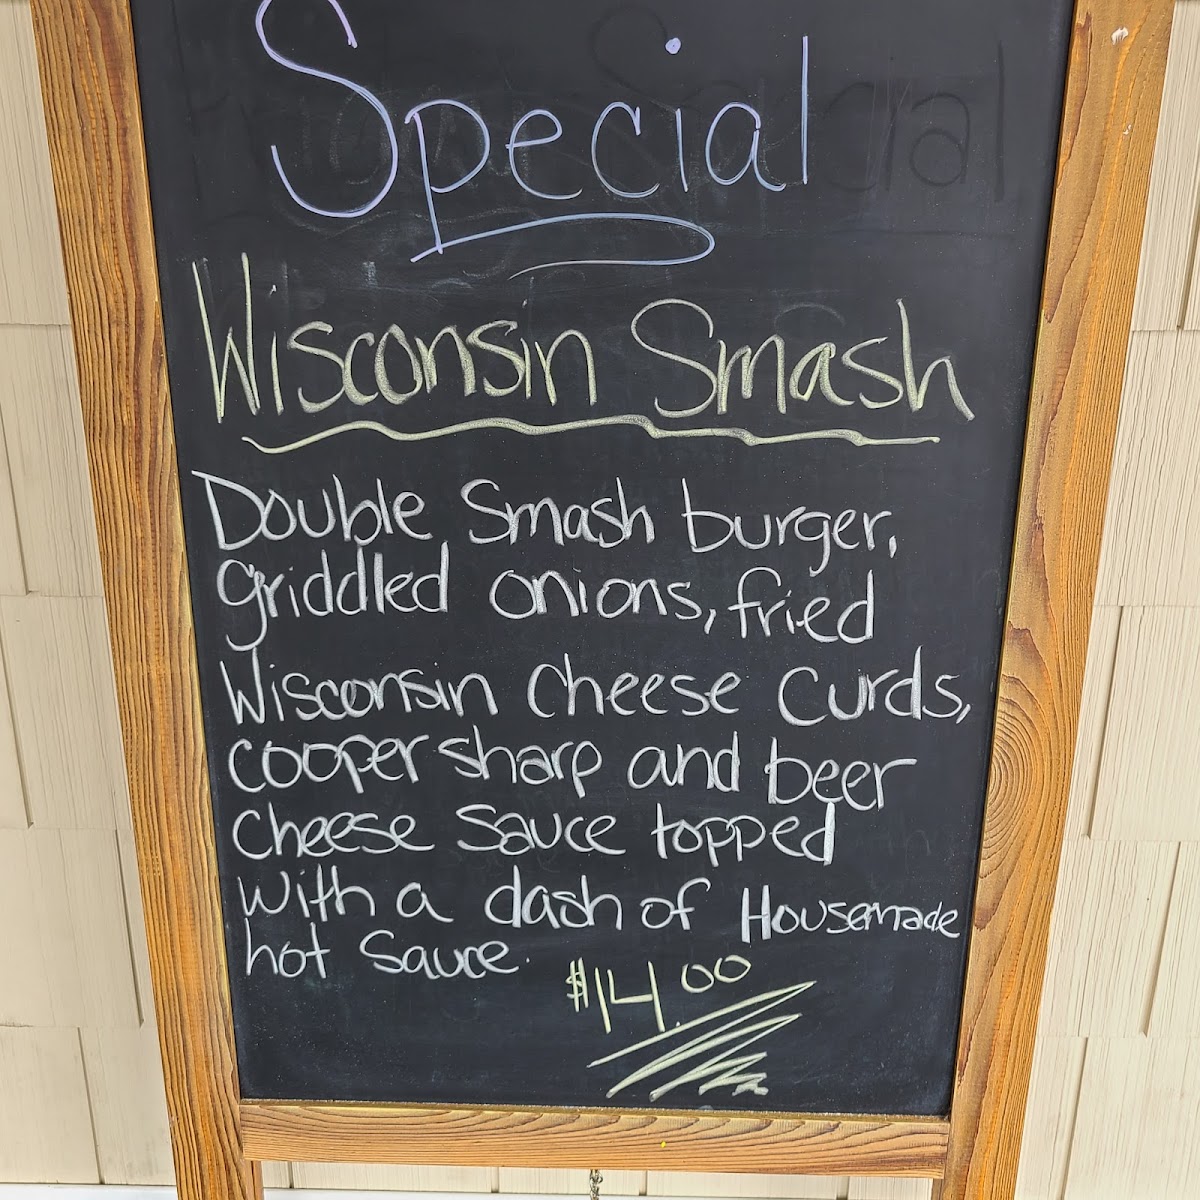 Special
Wisconsin Smash
Double Smash burger,
griddled onions, fried
Wisconsin Cheese Curds,
cooper sharp and beer
Cheese Sauce topped
with a dash of Housemade
hot Sauce.
$14.00